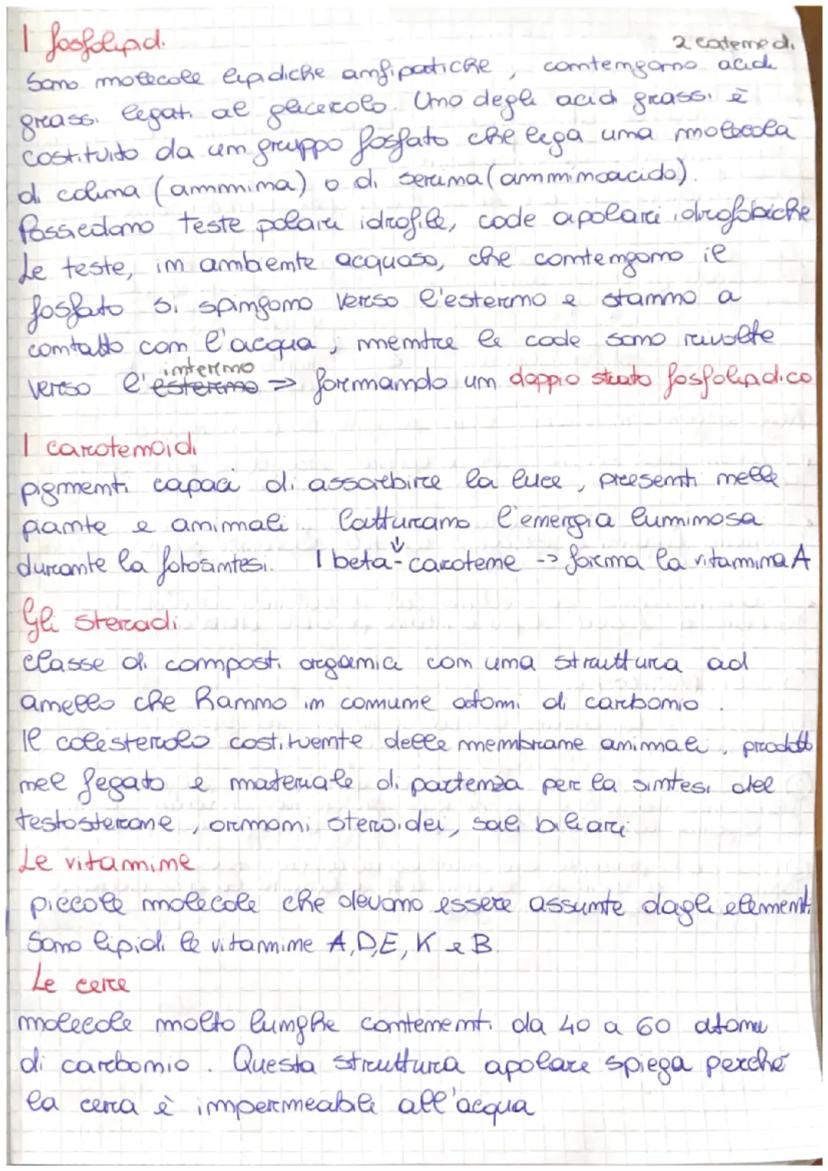 I fosfolipidi
2 catene di
Sono molecole lipidiche anfipatiche, contengono acidi
grassi legati al glicerolo. Uno degli acidi grassi è
costituito da un gruppo fosfato che lega una molecola
di colina (ammina) o di serina (amminoacido).
Possiedono teste polari idrofile, code apolari idrofobiche
Le teste, in ambiente acquoso, che contengono il
fosfato si spingono verso l'esterno e stanno a
contatto con l'acqua, mentre le code sono rivolte
interno
verso l'esterno => formando un doppio strato fosfolipidico
I carotenoidi
pigmenti capaci di assorbire la luce, presenti nelle
piante e animali. Catturano l'energia luminosa
durante la fotosintesi. I beta-carotene -> forma la vitamina A
Gli steroidi
classe di composti organici con una struttura ad
anello che hanno in comune atomi di carbonio.
Il colesterolo costituente delle membrane animali, prodotto
nel fegato e materiale di partenza per la sintesi del
testosterone, ormoni steroidei, sali biliari
Le vitamine
piccole molecole che devono essere assunte dagli elementi.
Sono lipidi le vitamine A, D, E, K e B.
Le cere
molecole molto lunghe contenenti da 40 a 60 atomi
di carbonio. Questa struttura apolare spiega perché
la cera è impermeabile all'acqua